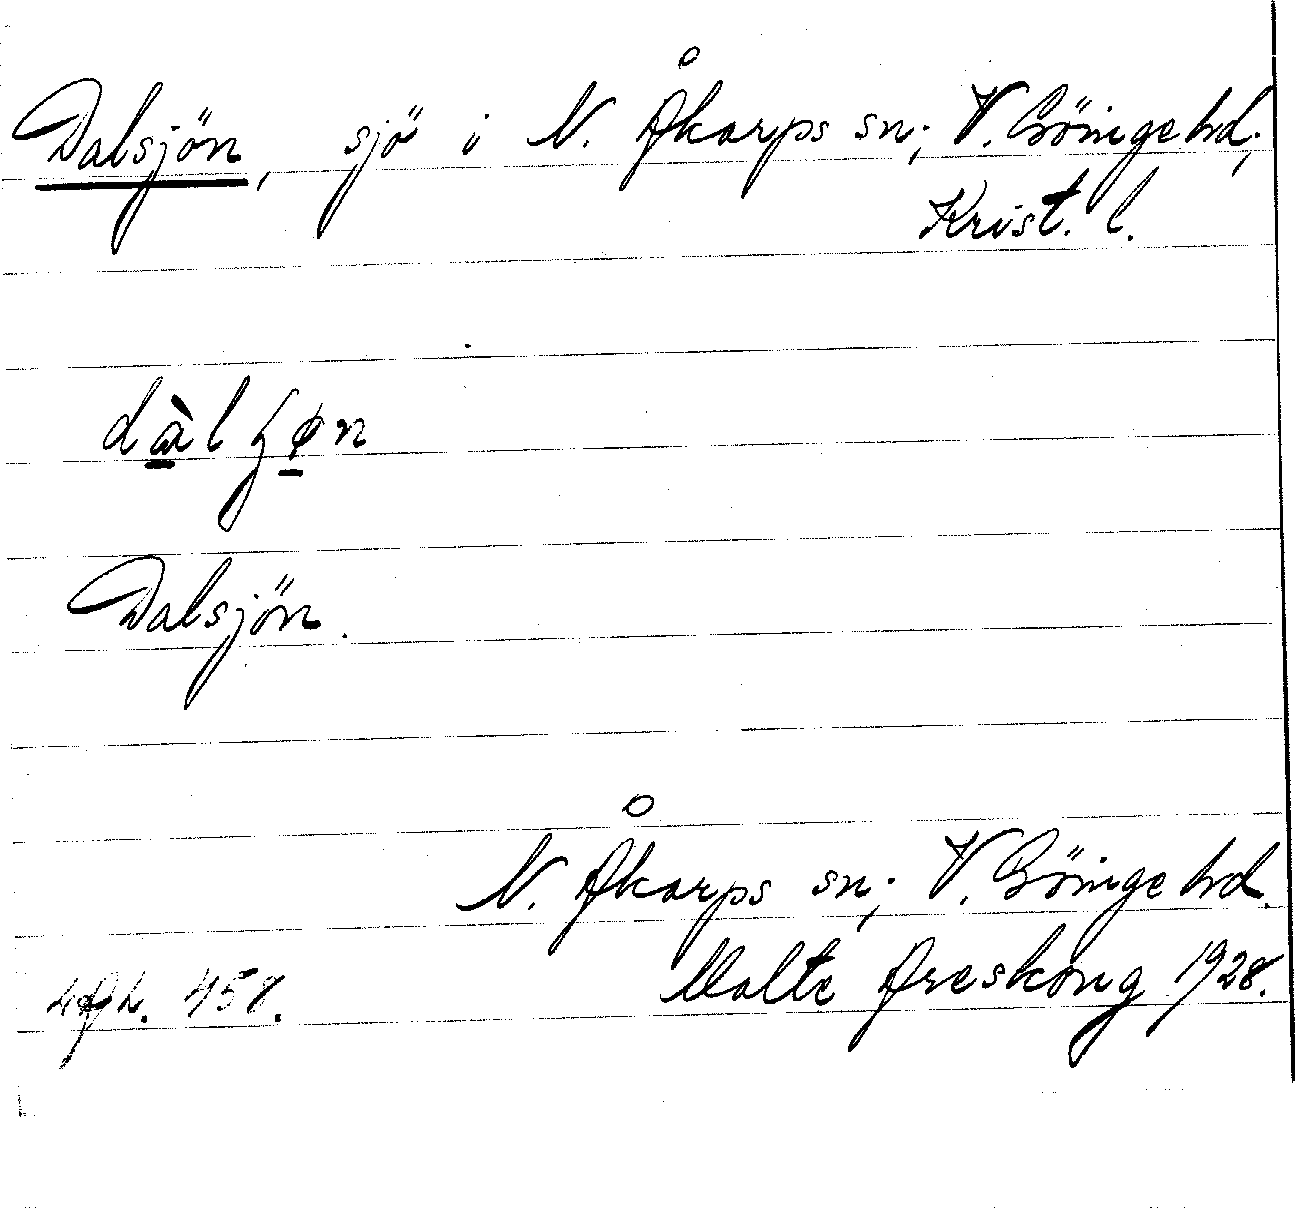 Dalsjön, sjö i N. Åkarps sn; V. Göinge hd;
Krist. l.
Dalsjön.
N. Åkarps sn; V. Göinge hd.
Malte Areskoug 1928.
458.